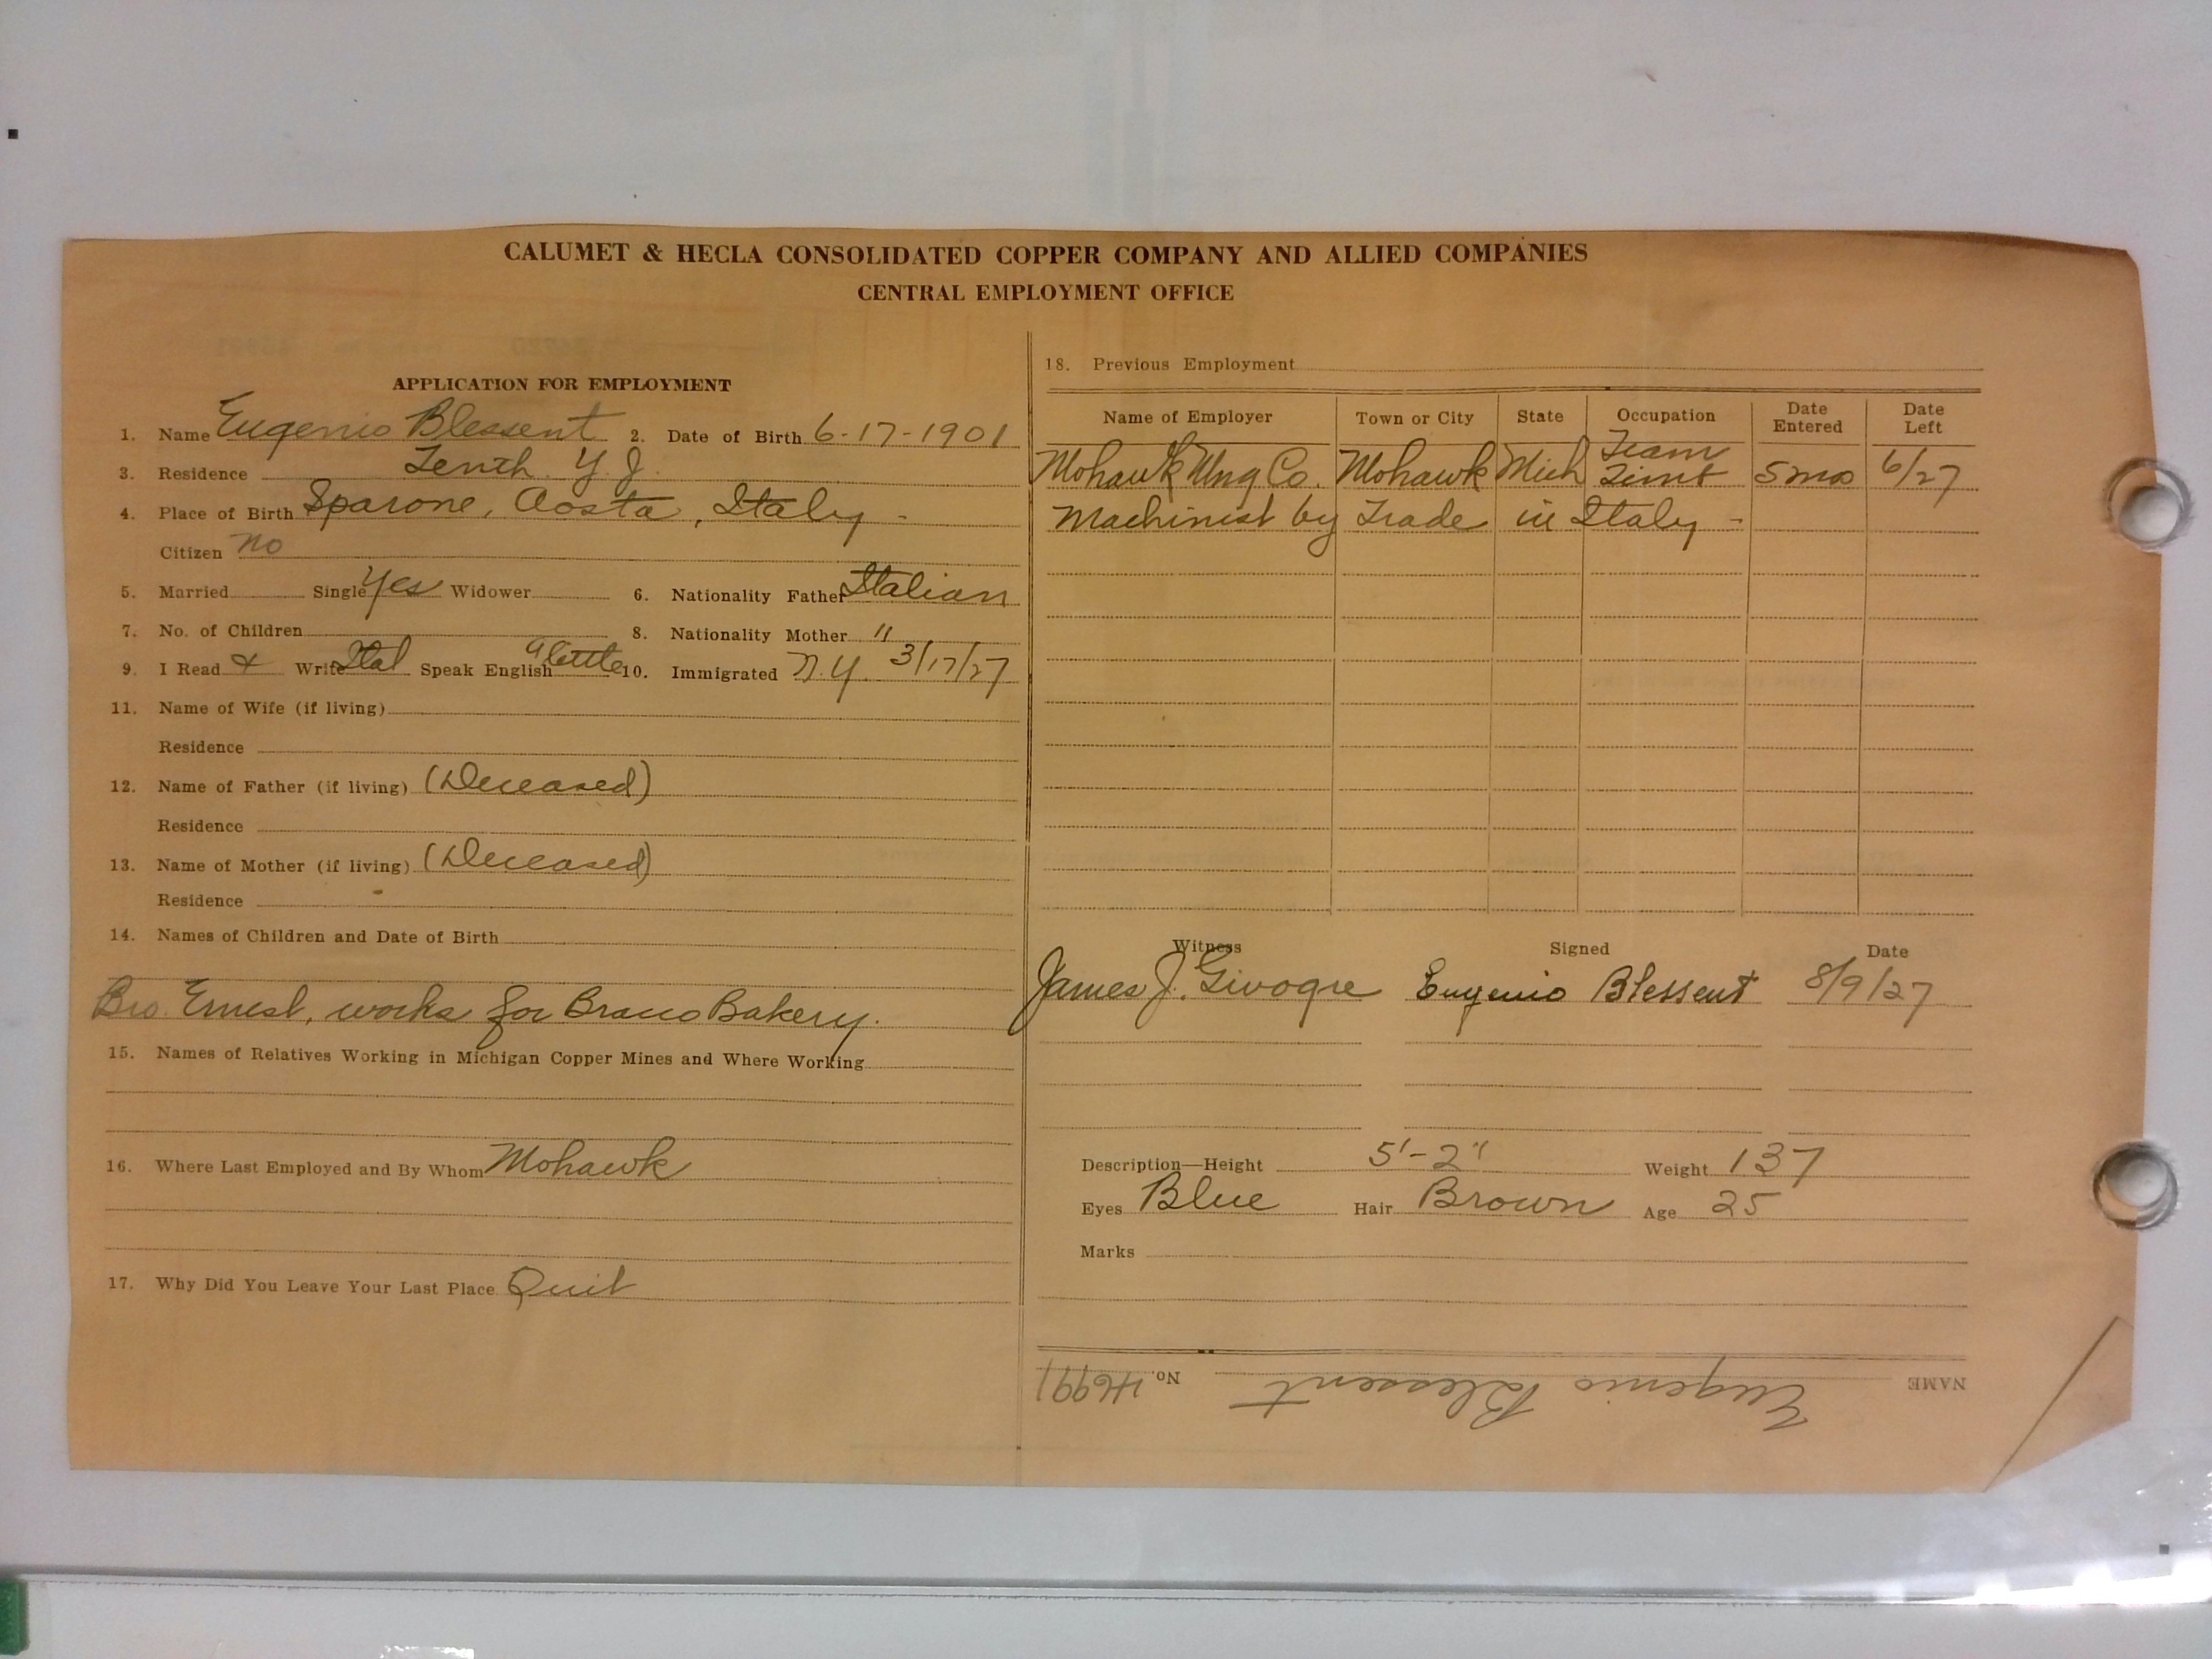 CALUMET & HECLA CONSOLIDATED COPPER COMPANY AND ALLIED COMPANIES
CENTRAL EMPLOYMENT OFFICE
APPLICATION FOR EMPLOYMENT
1. Name Eugenio Blessent 2. Date of Birth 6-17-1901
3. Residence Tenth. Y. J.
4. Place of Birth Sparone, Aosta, Italy -
Citizen no
5. Married Single Yes Widower 6. Nationality Father Italian
7. No. of Children 8. Nationality Mother "
9. I Read & Write Ital Speak English a little 10. Immigrated N.Y. 3/17/27
11. Name of Wife (if living)
Residence
12. Name of Father (if living) (Deceased)
Residence
13. Name of Mother (if living) (Deceased)
Residence
14. Names of Children and Date of Birth
Bro. Ernest, works for Bracco Bakery.
15. Names of Relatives Working in Michigan Copper Mines and Where Working
16. Where Last Employed and By Whom Mohawk
17. Why Did You Leave Your Last Place Quit
18. Previous Employment
Name of Employer Town or City State Occupation Date Entered Date Left
Mohawk Mng Co. Mohawk Mich Tram 5 mo 6/27
Machinist by Trade in Italy -
Witness Signed Date
James J. Givogre Eugenio Blessent 8/9/27
Description—Height 5'-2" Weight 137
Eyes Blue Hair Brown Age 25
Marks
NAME Eugenio Blessent No. 46991